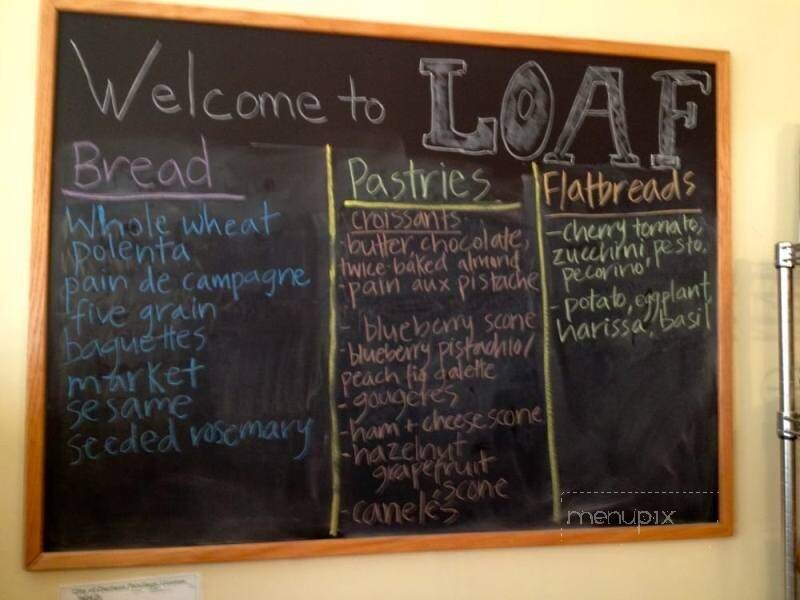 Welcome to LOAF
Bread
Whole wheat
polenta
pain de campagne
five grain
baguettes
market
sesame
seeded rosemary
Pastries
croissants
-butter chocolate,
twice-baked almond
-pain aux pistache
- blueberry scone
-blueberry pistachio/
peach fig galette
-gougeres
-ham + cheese scone
-hazelnut
grapefruit
scone
-canelés
Flatbreads
-cherry tomato,
zucchini, pesto,
pecorino
-potato, eggplant,
harissa, basil
menupix